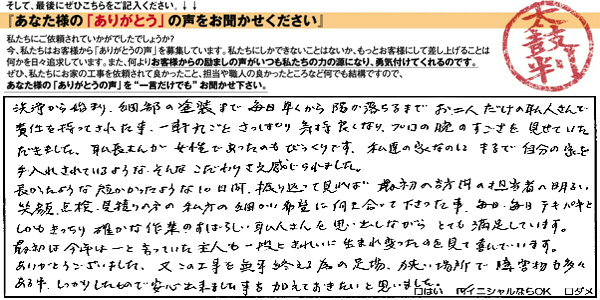 そして、最後にぜひこちらをご記入ください。↓↓
『あなた様の「ありがとう」の声をお聞かせください』
私たちにご依頼されていかがでしたでしょうか?
今、私たちはお客様から「ありがとうの声」を募集しています。私たちにしかできないことはないか、もっとお客様にして差し上げることは
何かを日々追求しています。また、何よりお客様からの励ましの声がいつも私たちの力の源になり、勇気付けてくれるのです。
ぜひ、私たちにお家の工事を依頼されて良かったこと、担当や職人の良かったところなど何でも結構ですので、
あなた様の「ありがとうの声」を"一言だけでも"お聞かせ下さい。
太鼓判
洗浄から始まり、細部の塗装まで毎日早くから陽が落ちるまでお二人だけの職人さんで
責任を持ってされた事、一軒丸ごとさっぱり気持良くなり、プロの腕のすごさを見せていた
だきました。職長さんが女性であったのもびっくりです。私達の家なのにまるで自分の家を
手入れされているような、そんなこだわりさえ感じられました。
長かったような短かかったような10日間、振り返って見れば最初の訪問の担当者の明るい
笑顔、点検、見積りの方の私方の細かい希望に何を合って下さった事、毎日毎日テキパキと
しかもきっちり確かな作業のすばらしい職人さんを思い出しながらとても満足しています。
最初は今年は一と言っていた主人も一段ときれいに生まれ変ったのを見て喜んでいます。
ありがとうございました。又この工事を無事終える為の足場、狭い場所で障害物も多々
ある中、しっかりしたもので安心出来ました事を加えておきたいと思いました。
□はい ☑イニシャルならOK □ダメ